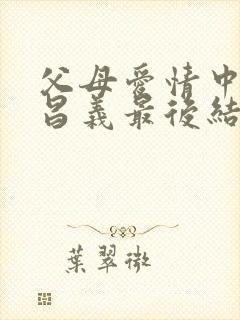 父母爱情中
昌義最後結
葉翠微